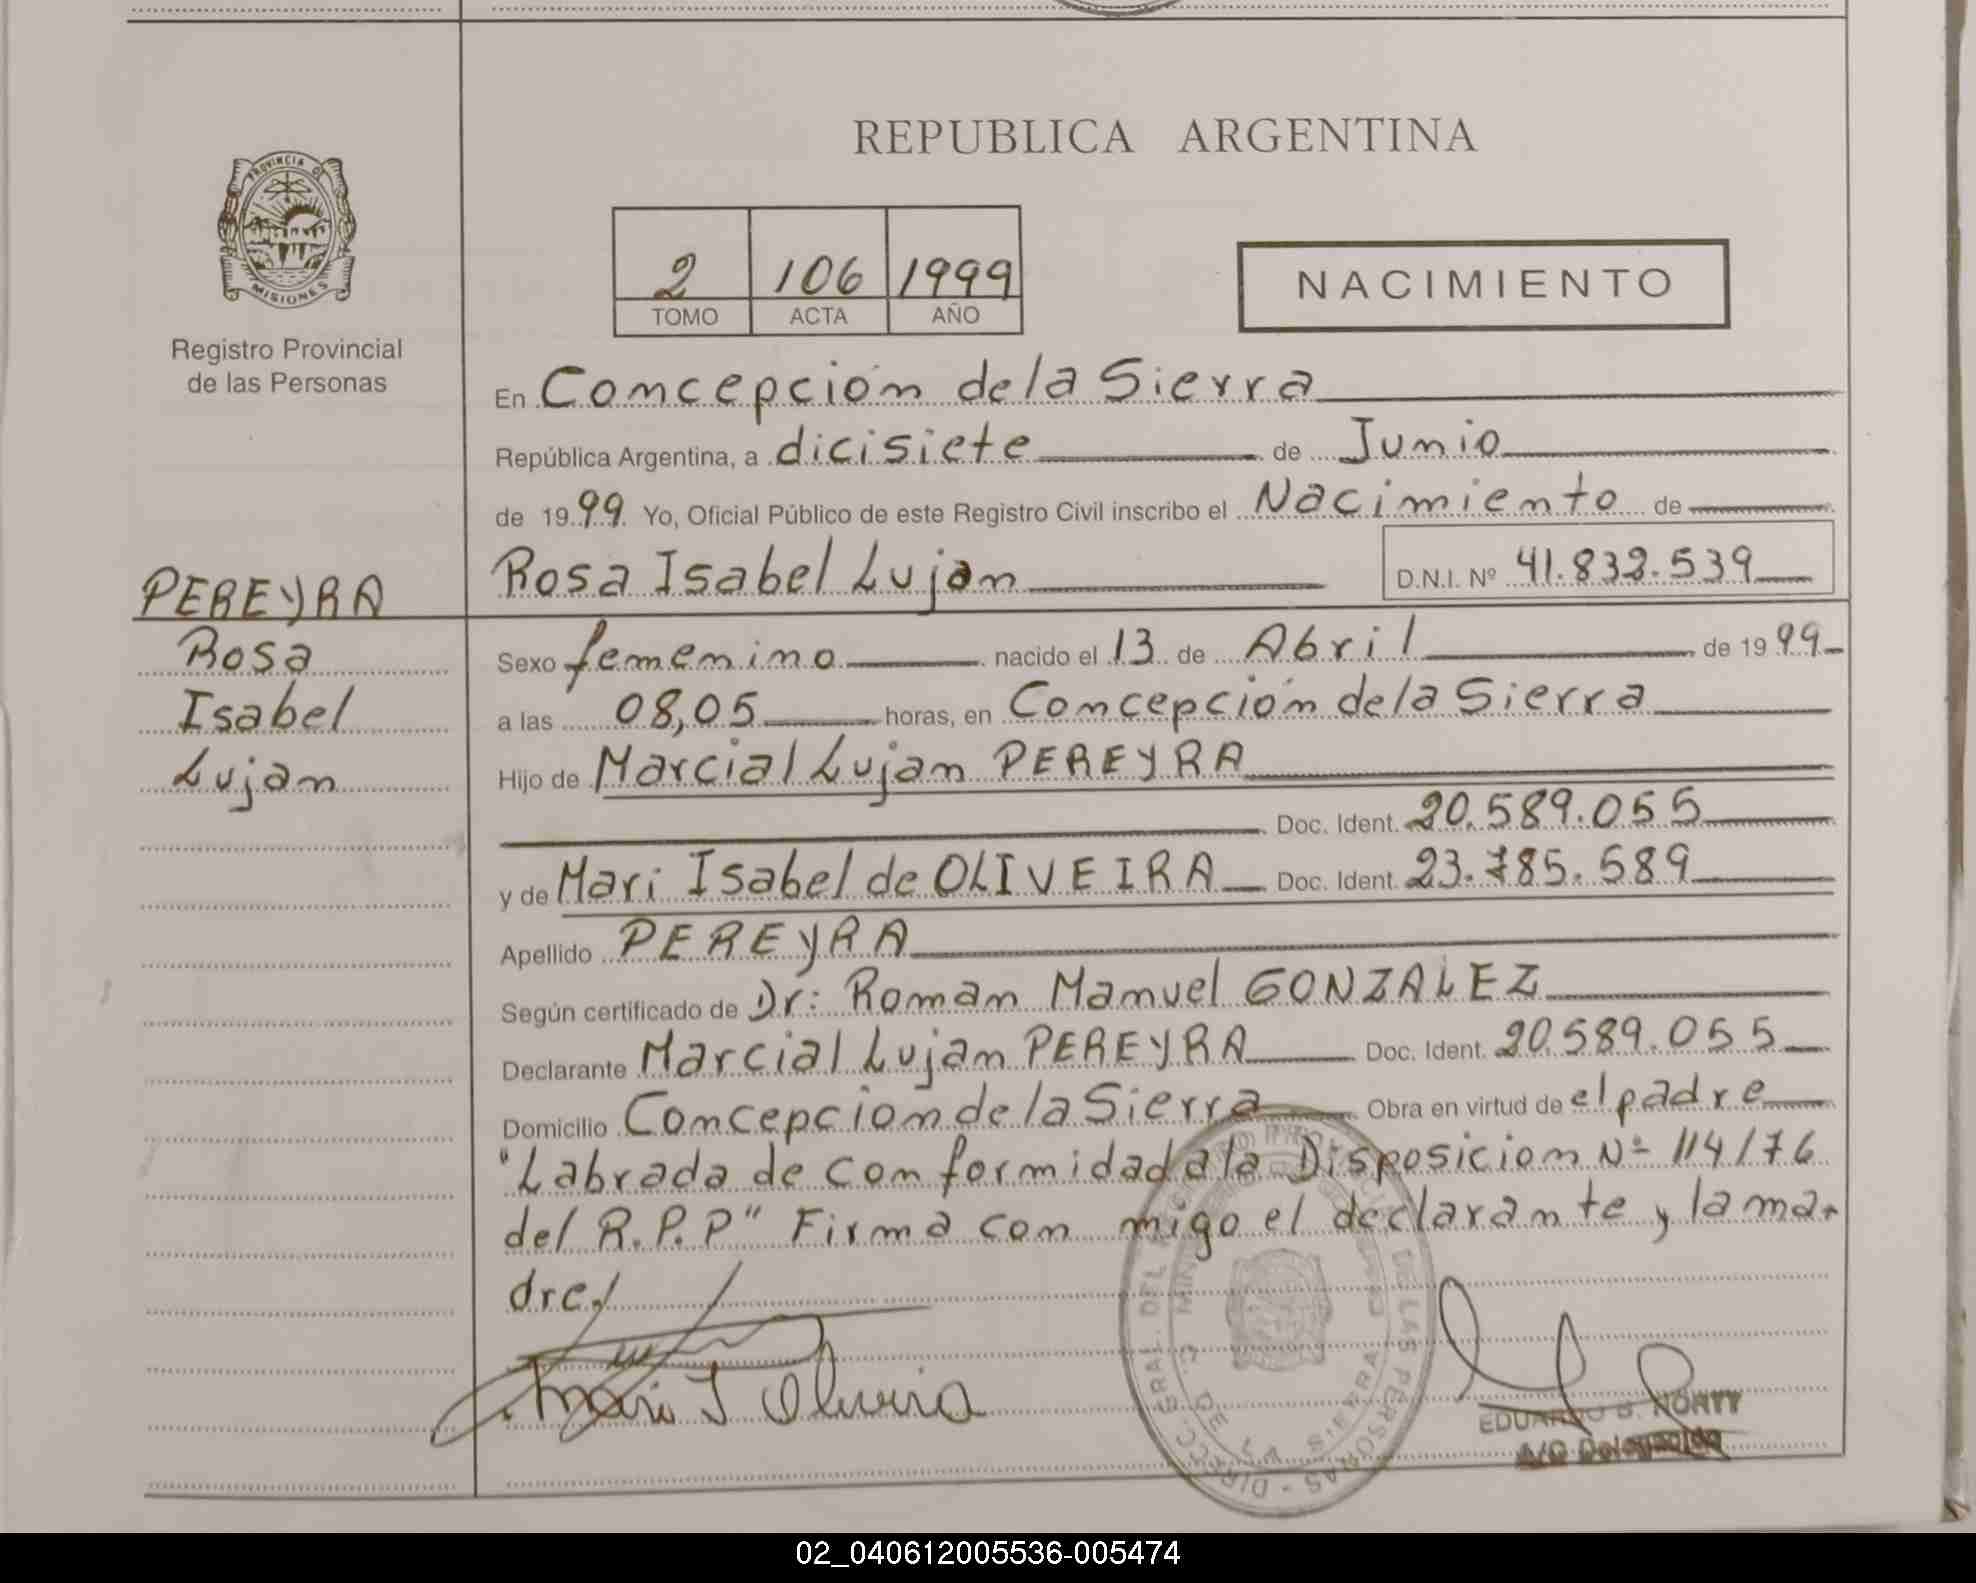 REPUBLICA ARGENTINA
PROVINCIA DE
MISIONES
Registro Provincial
de las Personas
2 106 1999
TOMO ACTA AÑO
NACIMIENTO
En Concepción de la Sierra
República Argentina, a dicisiete de Junio
de 1999 Yo, Oficial Público de este Registro Civil inscribo el Nacimiento de
Rosa Isabel Lujan D.N.I. Nº 41.832.539
PEREYRA
Rosa
Isabel
Lujan
Sexo femenino nacido el 13 de Abril de 1999
a las 08,05 horas, en Concepción de la Sierra
Hijo de Marcial Lujan PEREYRA
Doc. Ident. 20.589.055
y de Mari Isabel de OLIVEIRA Doc. Ident. 23.785.589
Apellido PEREYRA
Según certificado de Dr: Roman Manuel GONZALEZ
Declarante Marcial Lujan PEREYRA Doc. Ident. 20.589.055
Domicilio Concepcion de la Sierra Obra en virtud de el padre
"Labrada de conformidad a la Disposicion Nº 114/76
del R.P.P" Firma con migo el declarante y la ma-
dre/
Mari I Oliveira
EDUARDO B.
A/C
DIRECC. GRAL. DEL DE LAS PERSONAS
DE LA SIERRA
02_040612005536-005474